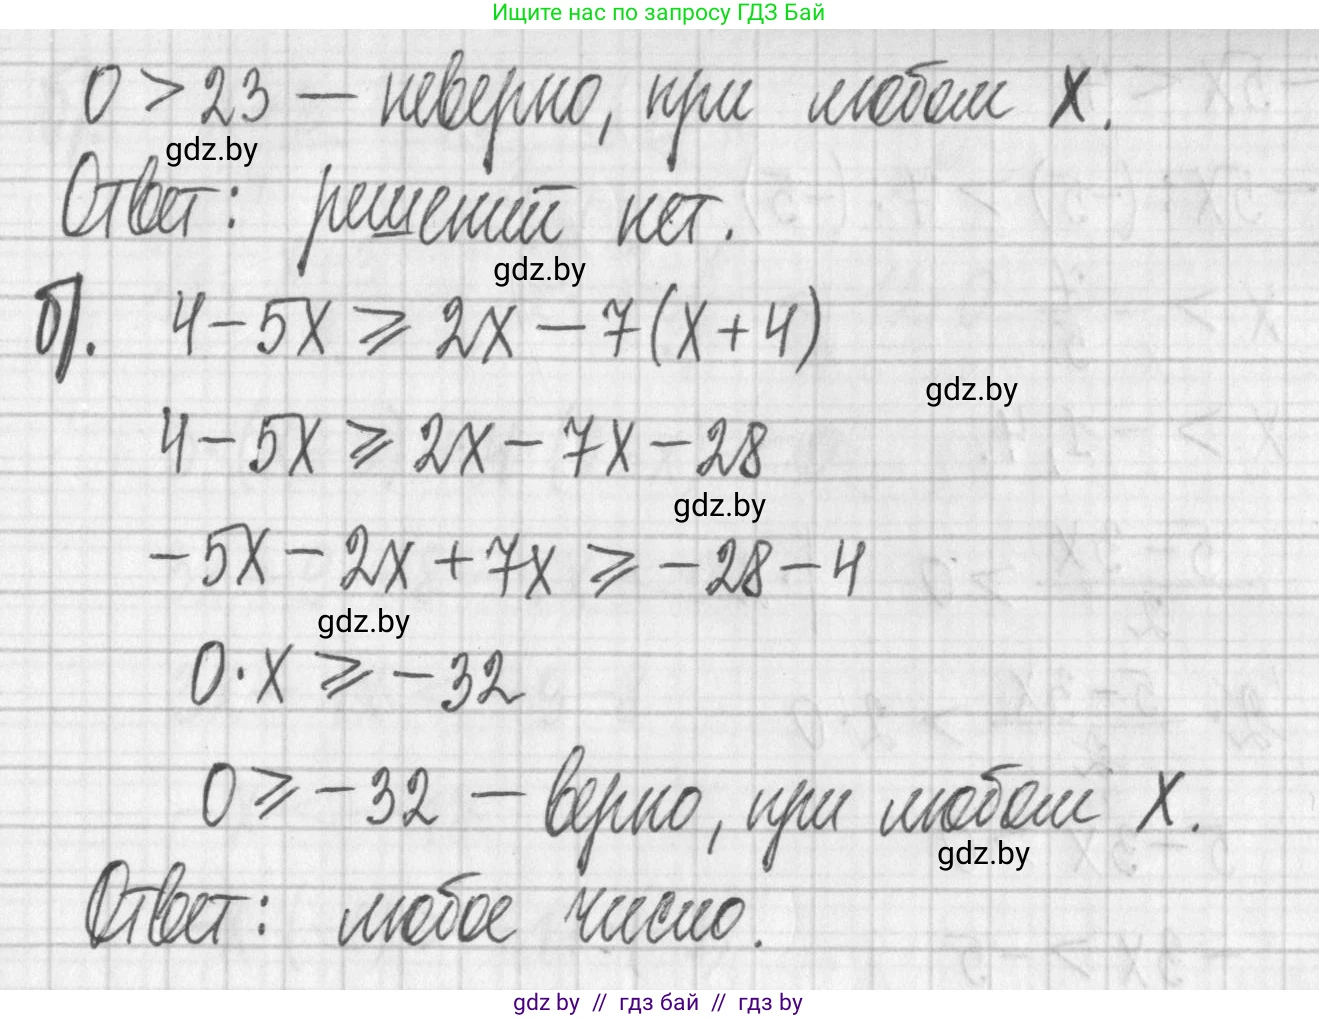 Ищите нас по запросу ГДЗ Бай
0 > 23 — неверно, при любом x.
gdz.by
Ответ: решений нет.
gdz.by
б). 4 - 5x ⩾ 2x - 7(x + 4)
gdz.by
4 - 5x ⩾ 2x - 7x - 28
gdz.by
-5x - 2x + 7x ⩾ -28 - 4
gdz.by
0 · x ⩾ -32
0 ⩾ -32 — верно, при любом x.
gdz.by
Ответ: любое число.
gdz by // гдз бай // гдз by